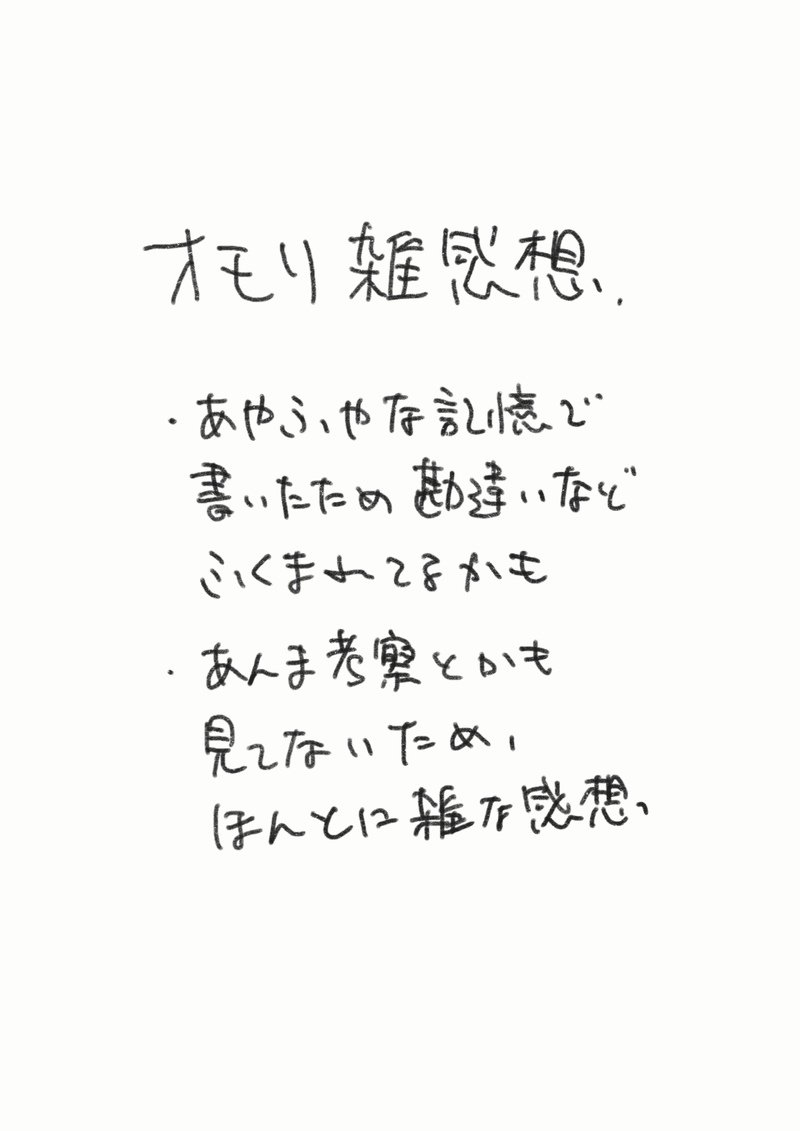 オモリ雑感想.
・あやふやな記憶で
書いたため勘違いなど
ふくまれてるかも
・あんま考察とかも
見てないため、
ほんとに雑な感想、